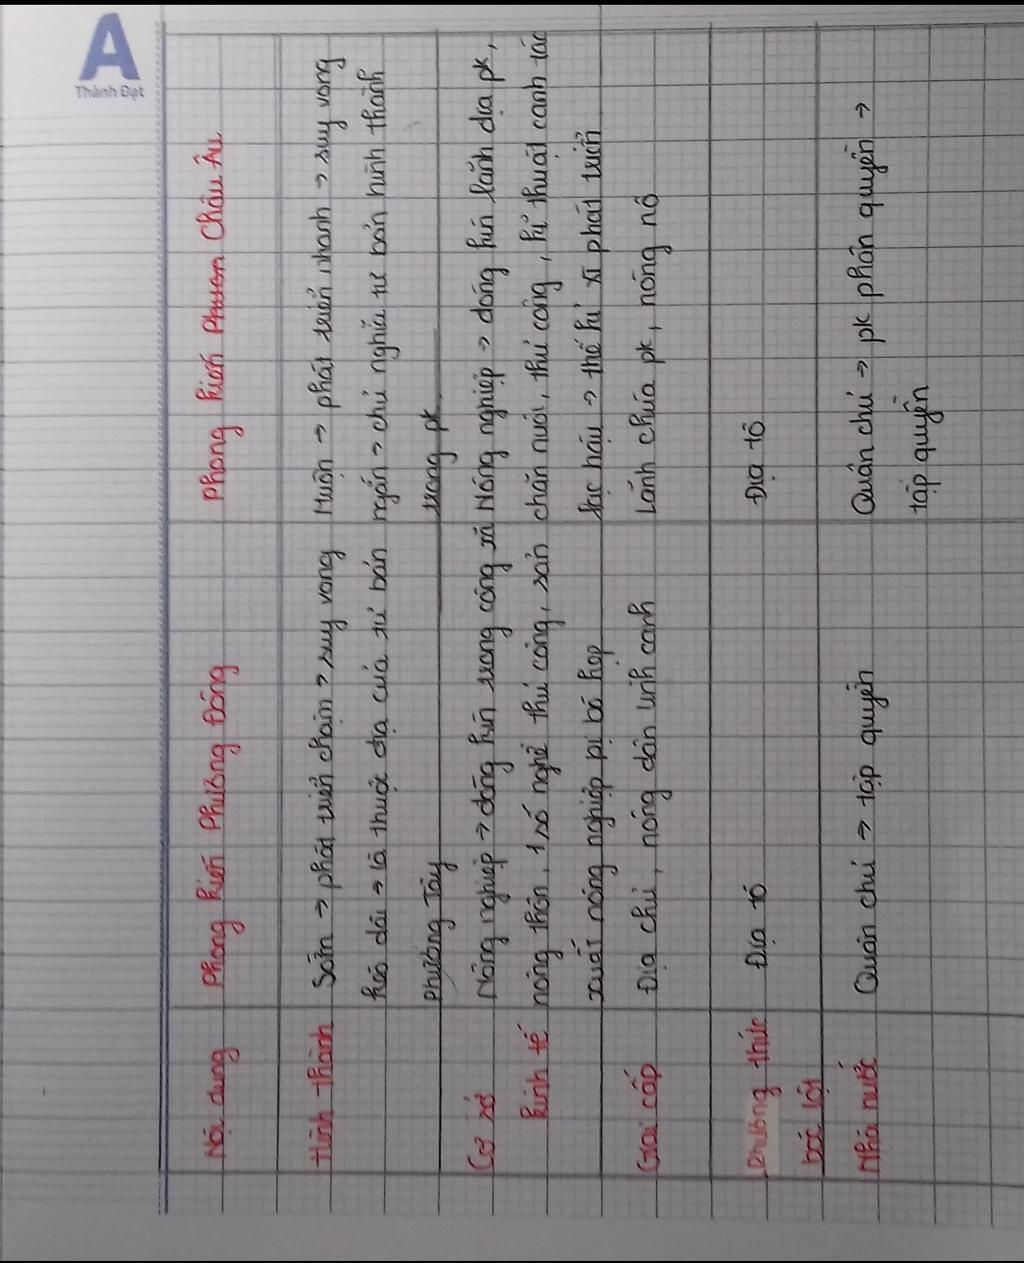 A
Thành Đạt
Nội dung
Phong kiến Phương Đông
Phong kiến Phươn Châu Âu
Hình thành
Sớm → phát triển chậm → suy vong
kéo dài → là thuộc địa của tư bản
Phương Tây
Muộn → phát triển nhanh → suy vong
ngắn → chủ nghĩa tư bản hình thành
trong pk
Cơ sở
kinh tế
Nông nghiệp → đóng kín trong công xã
nông thôn, 1 số nghề thủ công, sản
xuất nông nghiệp bị bó hẹp
Nông nghiệp → đóng kín lãnh địa pk,
chăn nuôi, thủ công, kĩ thuật canh tác
lạc hậu → thế kỉ XI phát triển
Giai cấp
Địa chủ, nông dân lĩnh canh
Lãnh chúa pk, nông nô
Phương thức
bóc lột
Địa tô
Địa tô
Nhà nước
Quân chủ → tập quyền
Quân chủ → pk phân quyền →
tập quyền